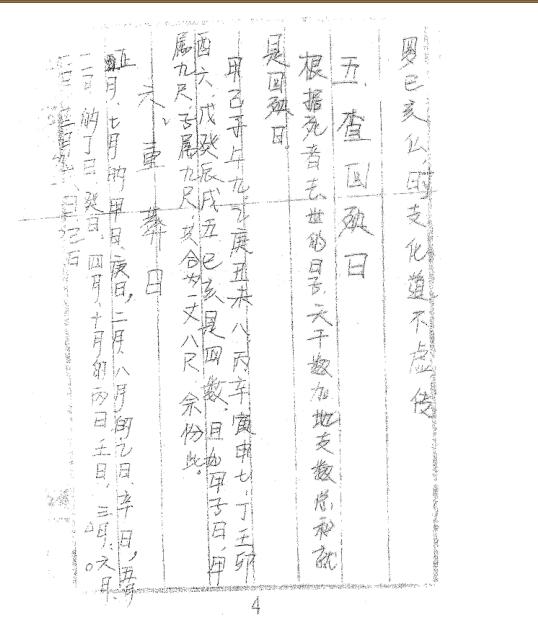 罗巳亥仏,的支化道不虚传
五、查回殃日
根据死者去世的日子,天干数加地支数总和就
是回殃日
甲己子午九,乙庚丑未八,丙辛寅申七,丁壬卯
酉六,戊癸辰戌五,巳亥是四数,且如甲子日,甲
属九尺,子属九尺,共合为一丈八尺,余份此。
六、重葬日
正月、七月的甲日、庚日,二月、八月的乙日、辛日,五月
二月的丁日、癸日,四月、十月的丙日、壬日,三月、六月、
4